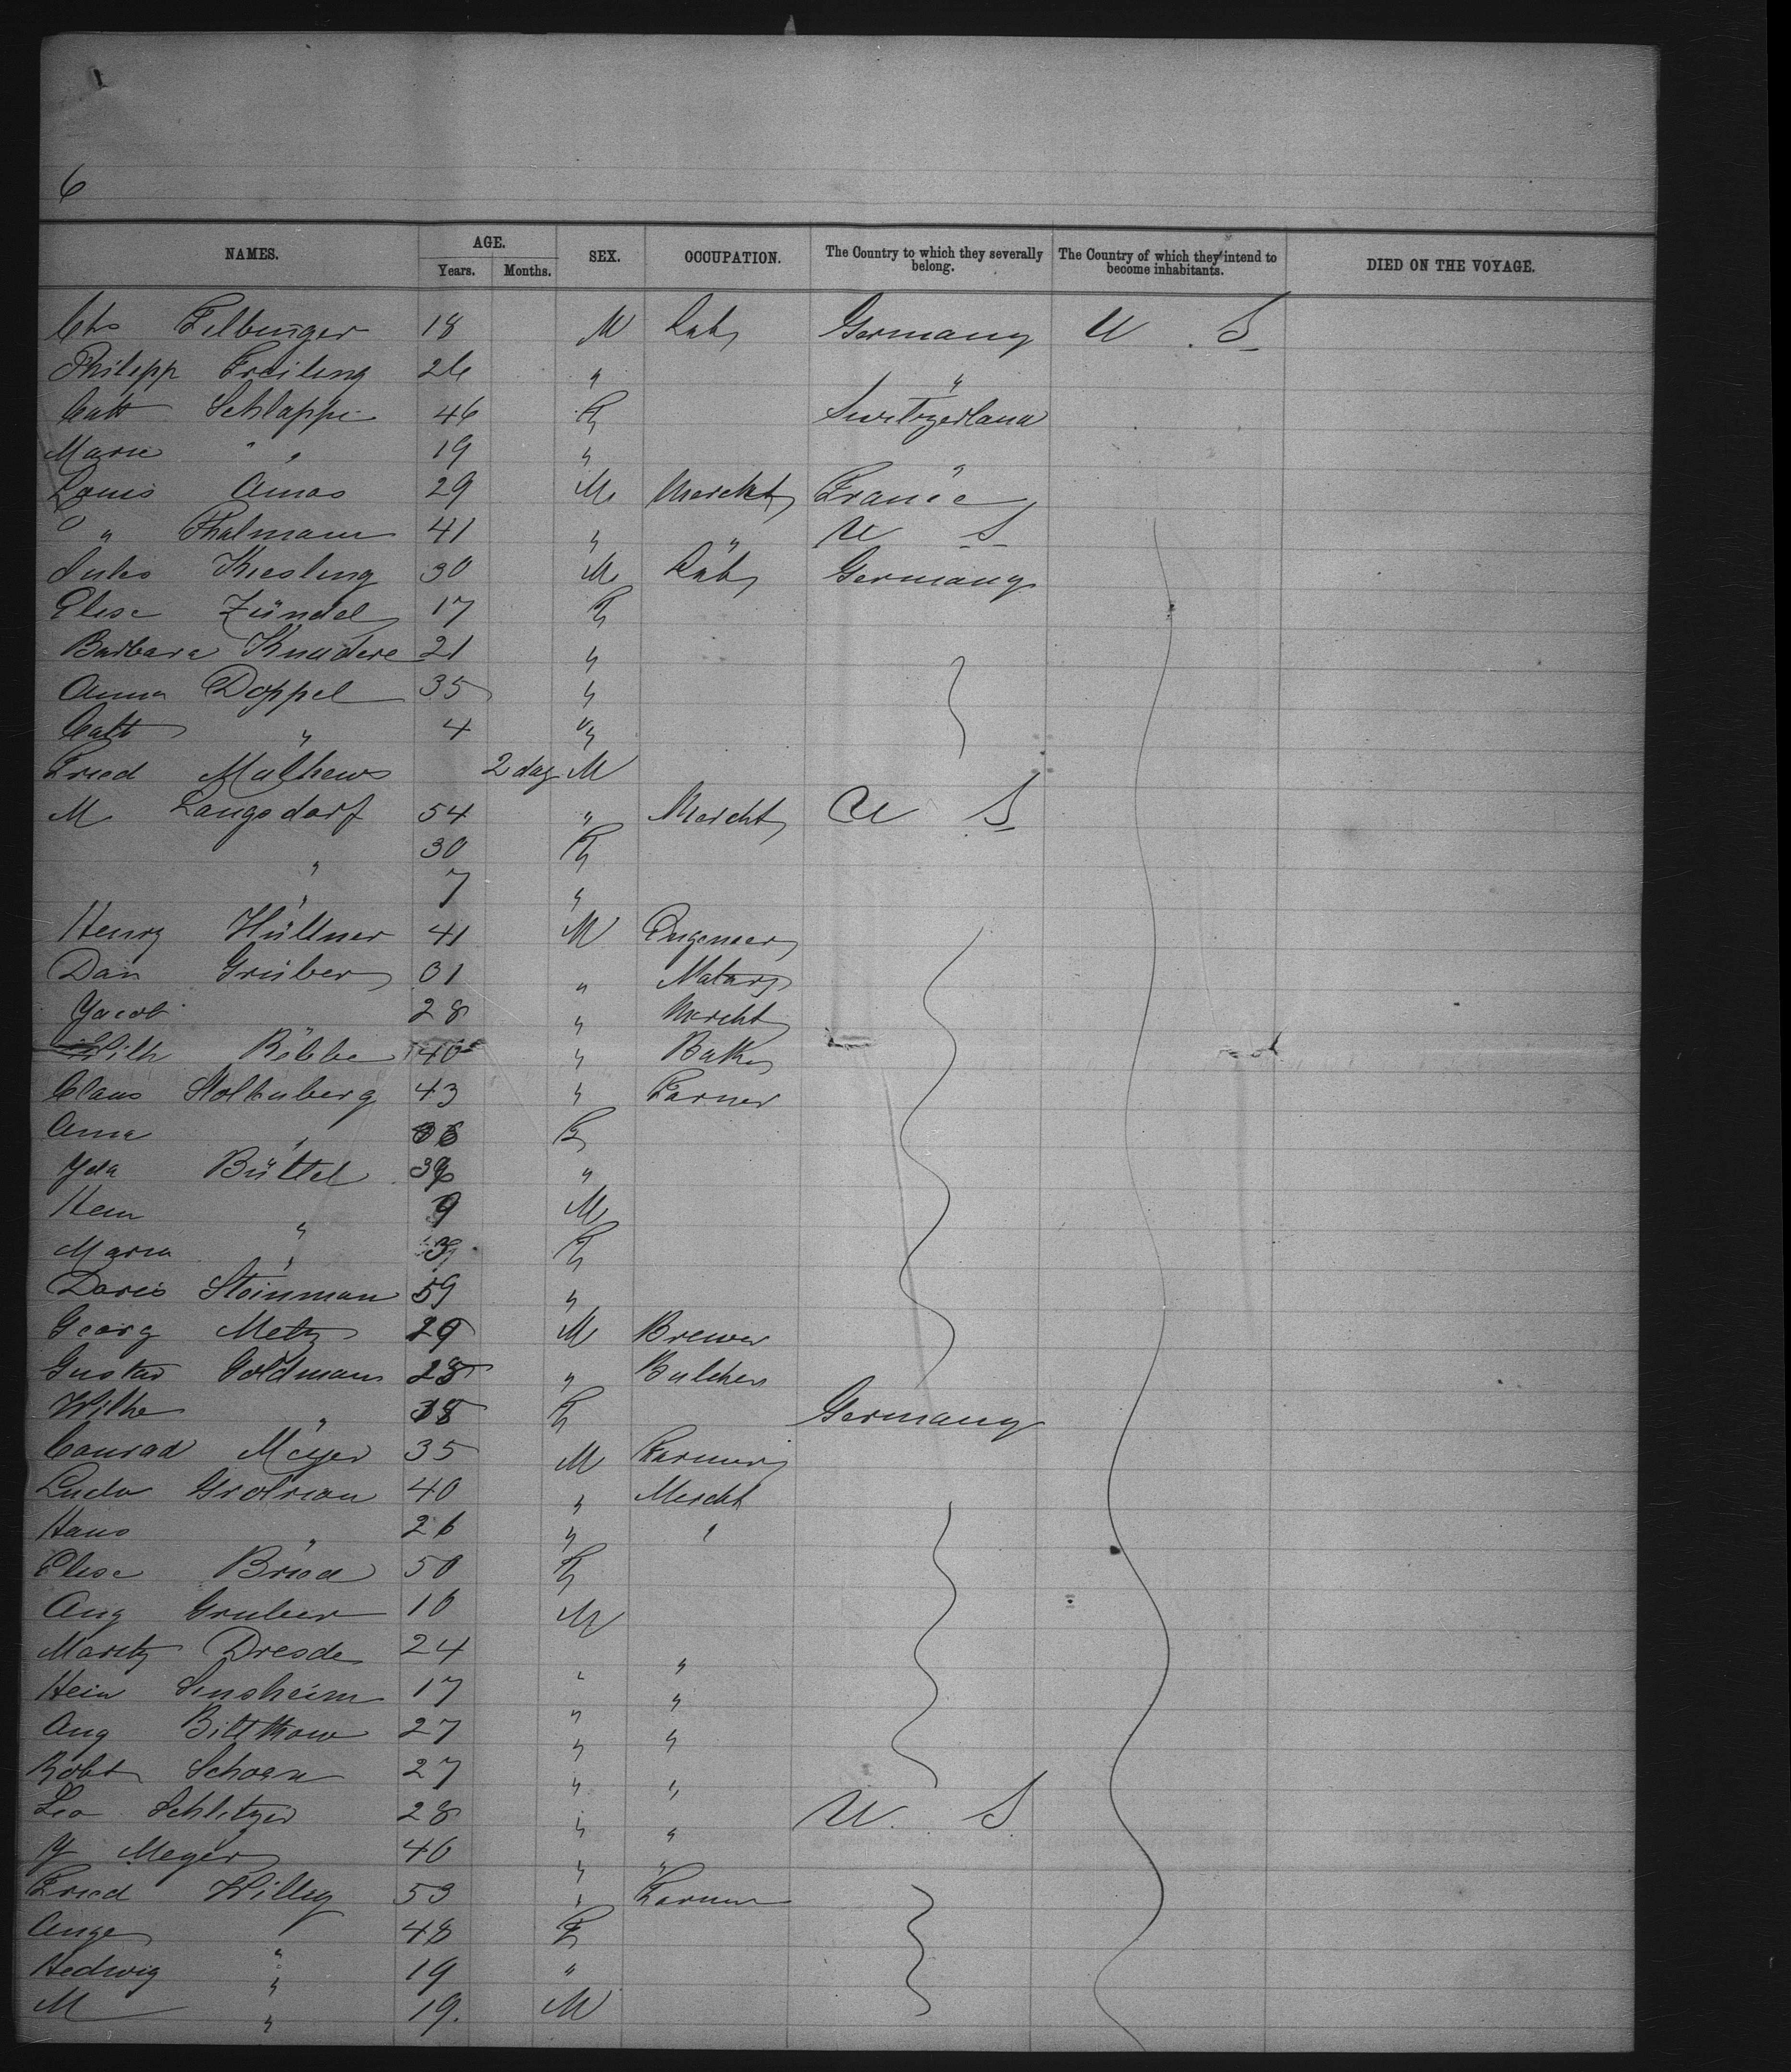 6
NAMES. AGE. Years. Months. SEX. OCCUPATION. The Country to which they severally belong. The Country of which they intend to become inhabitants. DIED ON THE VOYAGE.
Chs Filbinger 18 M Lab Germany U. S
Philipp Freiling 26 " "
Cath Schlappi 46 F Switzerland
Marie " 19 " "
Louis Amas 29 M Mercht France
" Thalmann 41 " " U S
Jules Kiesling 30 M Lab Germany
Elise Zündel 17 F
Barbara 21 "
Anna Doppel 35 "
Cath " 4 "
Fried Mathews 2 day M
M Langsdorf 54 " Mercht U S
" 30 F
" 7 "
Henry Hüttner 41 M Engeneer
Dan Gruber 31 " Notary
Jacob 28 " Mercht
Wilh Röbbe 40 " Baker
Claus Stoltenberg 43 " Farmer
Anna " F
Yda Büttel "
Hein " 9 M
Maria " F
Doris Steinman 59 "
Georg Metz 29 M Brewer
Gustav Goldman 28 " Butcher
Wilhe " 18 F Germany
Conrad Meyer 35 M Farmer
Ludw Grotrian 40 " Mercht
Hans " 26 " "
Elise Bried 50 F
Aug Gruber 16 M
Moritz Dresde 24 " "
Hein Sinsheim 17 " "
Aug Bitthow 27 " "
Robt Schoen 27 " "
Leo Schlitzer 28 " " U. S.
Y Meyer 40 " "
Fried Willig 53 " Farmer
Auge " 48 F
Hedwig " 19 "
M " 19. M